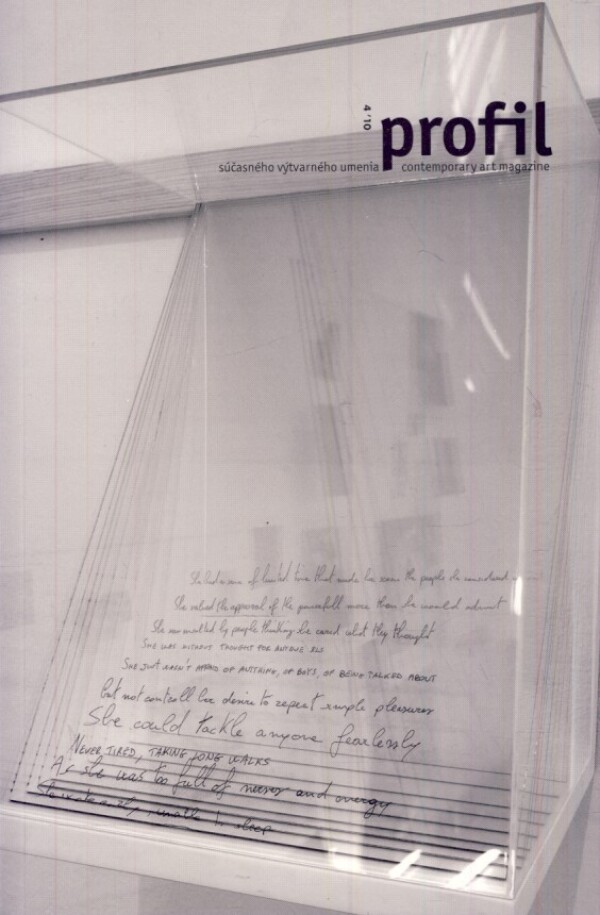 4 '10
profil
súčasného výtvarného umenia contemporary art magazine
She had sense of limited time that made her the people she considered
She valued the approval of the powerfull more than he would admit
She was by people thinking he cared what they thought
SHE WAS WITHOUT THOUGHT FOR ANYONE ELS
SHE JUST WASN'T AFRAID OF ANYTHING, OF BOYS, OF BEING TALKED ABOUT
but not controll her desire to repeat simple pleasures
She could tackle anyone fearlessly
NEVER TIRED, TAKING LONG WALKS
As she was too full of nerves and energy
unable to sleep